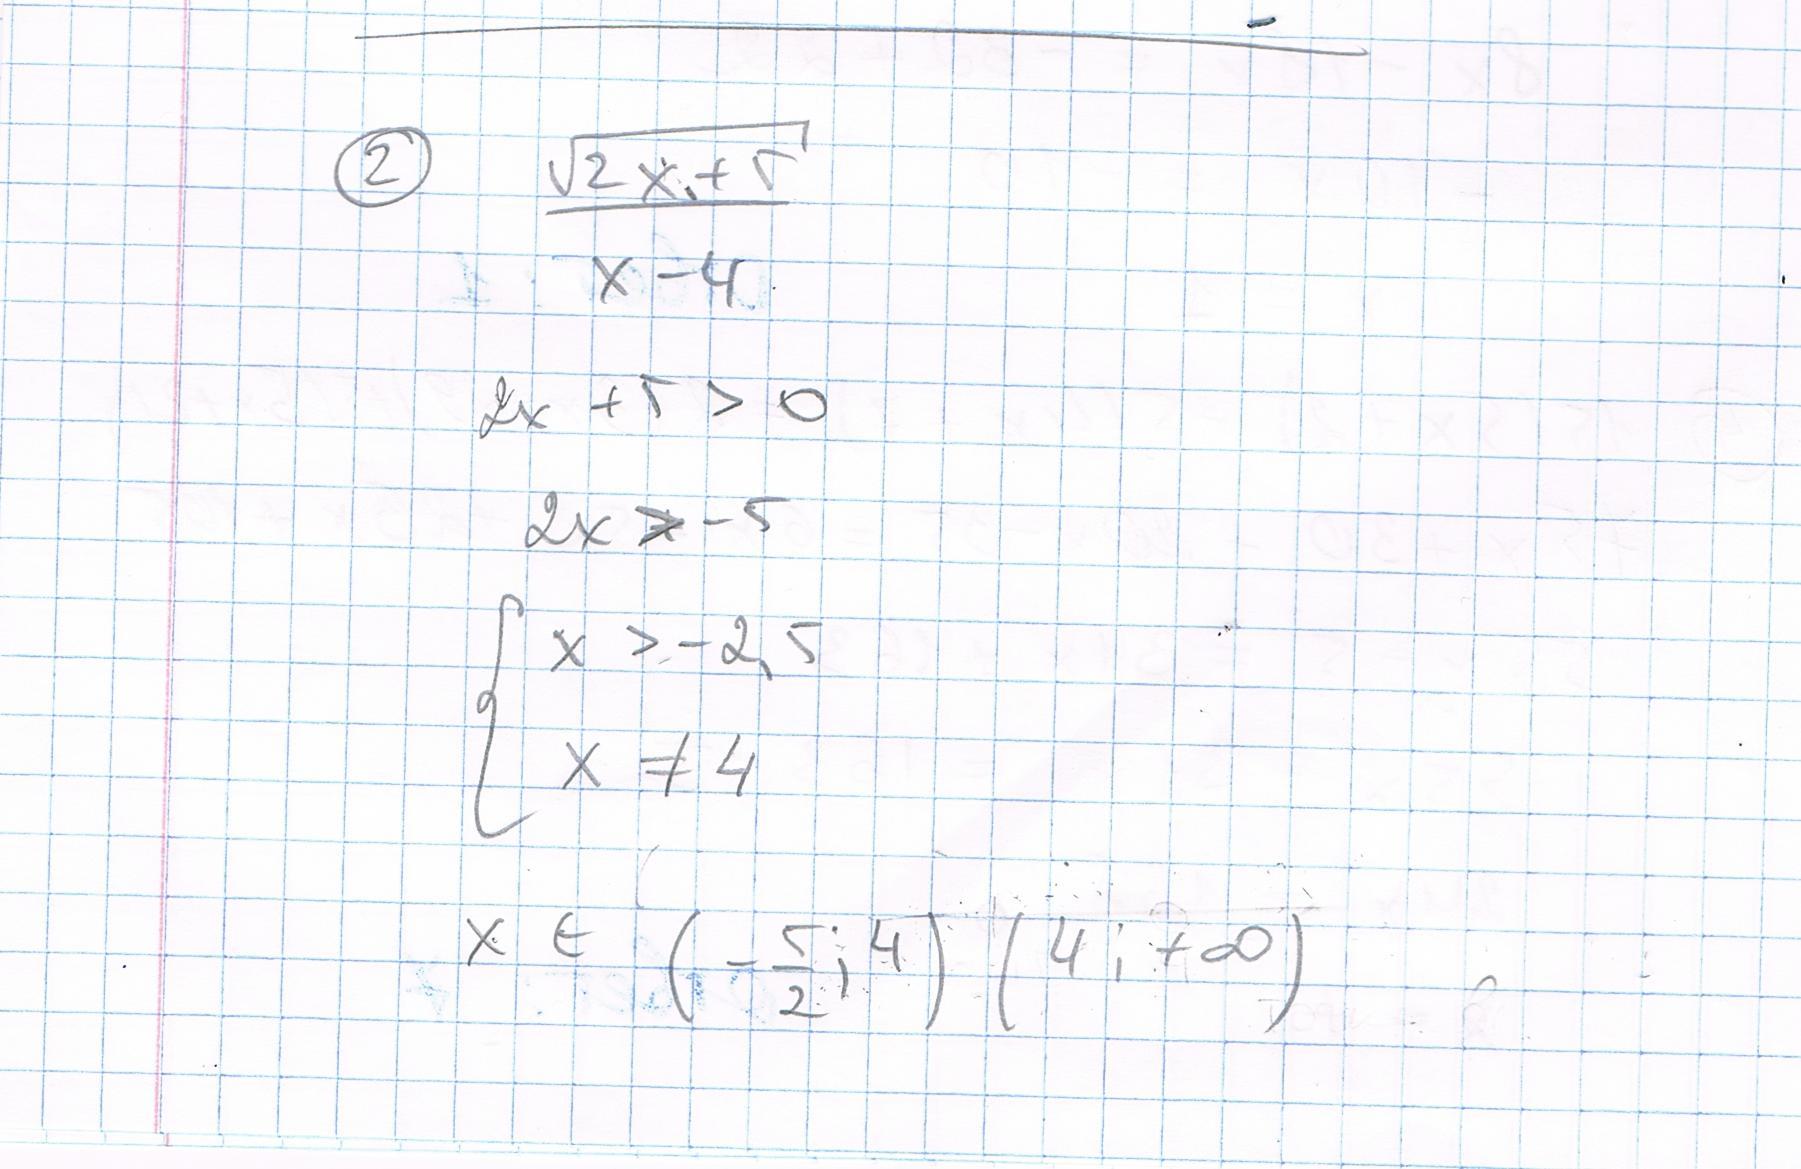 ② √2x+5
x-4
2x+5>0
2x>-5
{ x>-2,5
x≠4
x ∈ (-5/2; 4) (4; +∞)